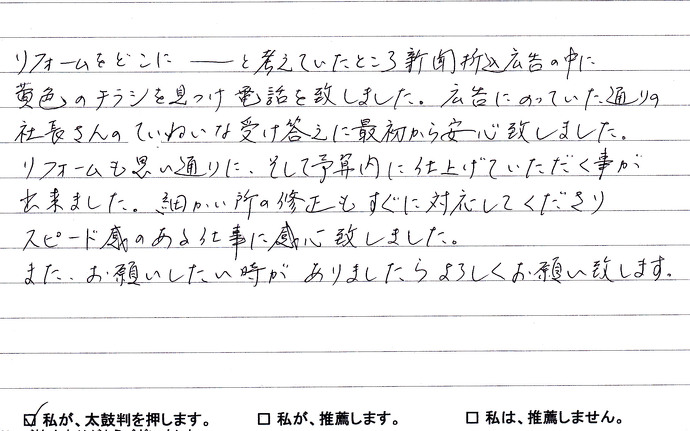 リフォームをどこに ――と考えていたところ新聞折込広告の中に
黄色のチラシを見つけ電話を致しました。広告にのっていた通りの
社長さんのていねいな受け答えに最初から安心致しました。
リフォームも思い通りに、そして予算内に仕上げていただく事が
出来ました。細かい所の修正もすぐに対応してくださり
スピード感のある仕事に感心致しました。
また、お願いしたい時がありましたらよろしくお願い致します。
☑ 私が、太鼓判を押します。 □ 私が、推薦します。 □ 私は、推薦しません。